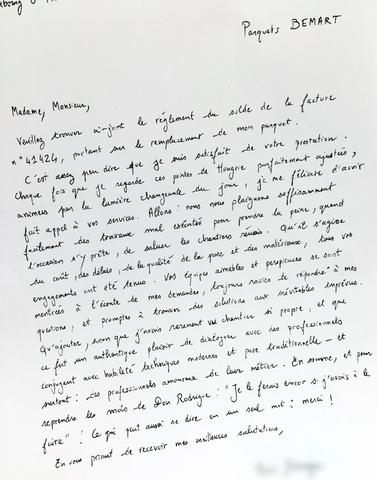 Parquets BEMART
Madame, Monsieur,
Veuillez trouver ci-joint le règlement du solde de la facture
n° 41424, portant sur le remplacement de mon parquet.
C'est assez peu dire que je suis satisfait de votre prestation.
Chaque fois que je regarde ces pointes de Hongrie parfaitement ajustées,
animées par la lumière changeante du jour, je me félicite d'avoir
fait appel à vos services. Allons : nous nous plaignons suffisamment
facilement des travaux mal exécutés pour prendre la peine, quand
l'occasion s'y prête, de saluer les chantiers réussis. Qu'il s'agisse
du coût, des délais, de la qualité de la pose et des matériaux, tous vos
engagements ont été tenus. Vos équipes aimables et perspicaces se sont
montrées à l'écoute de mes demandes, toujours ravies de répondre à mes
questions, et promptes à trouver des solutions aux inévitables imprévus.
Qu'ajouter, sinon que j'avais rarement vu chantier si propre, et que
ce fut un authentique plaisir de dialoguer avec des professionnels
conjuguant avec habileté techniques modernes et pose traditionnelle – et
surtout : des professionnels amoureux de leur métier. En somme, et pour
reprendre les mots de Don Rodrigue : "Je le ferais encor si j'avais à le
faire" ! Ce qui peut aussi se dire en un seul mot : merci !
En vous priant de recevoir mes meilleures salutations,